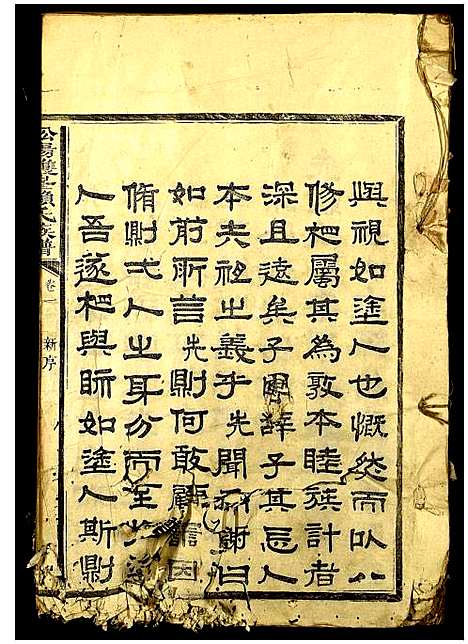 與視如塗人也慨然而以
修祀屬其為敦本睦族計者
深且遠矣子固辭子其忘人
本夫祖之義乎先聞而謝曰
如前所言先則何敢
脩則弌人之耳分而至
人吾遂祀與眎如塗人斯則
雙 賴氏族譜
卷一
新序